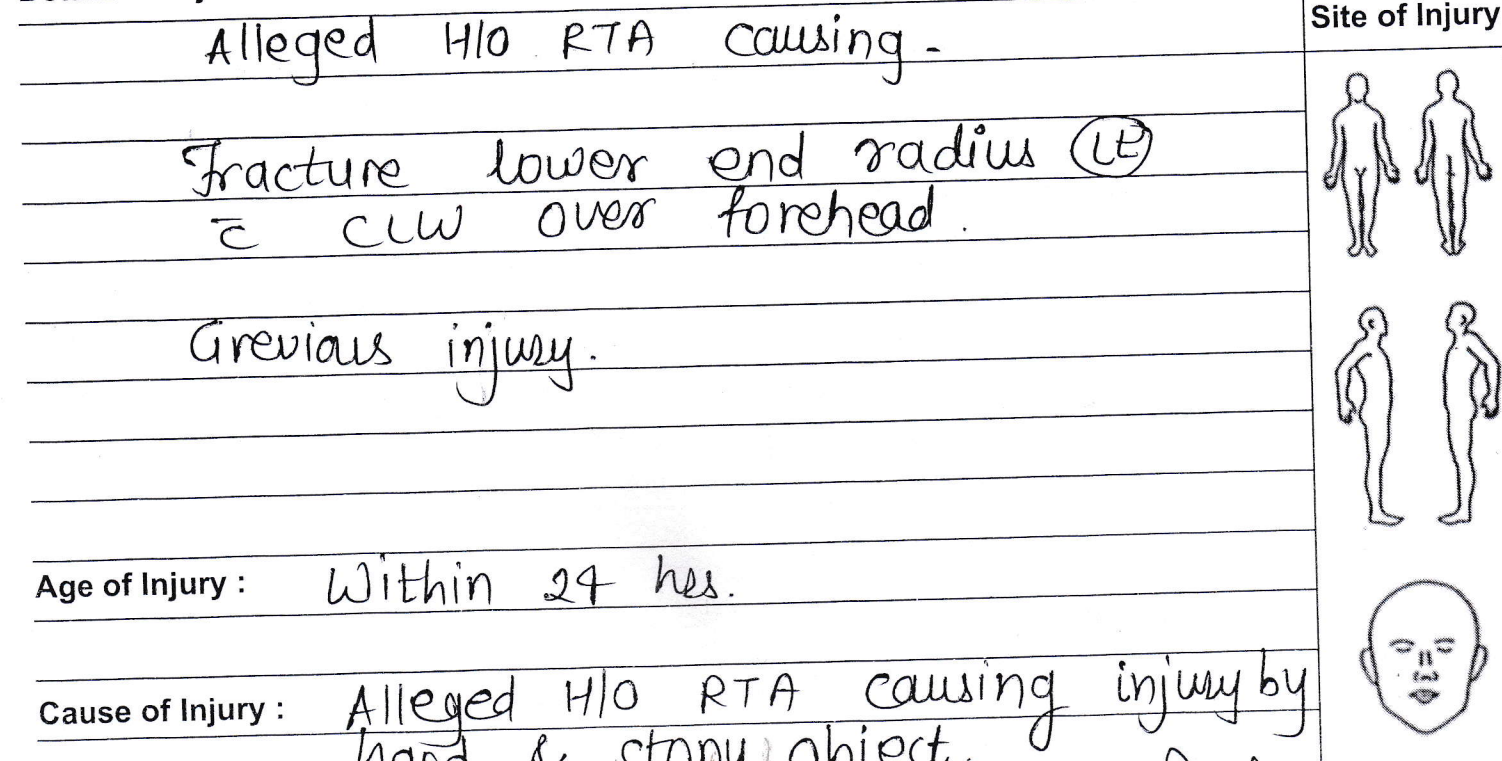 Site of Injury
Alleged H/O RTA causing -
Fracture lower end radius (Lt)
c̄ CLW over forehead.
Grevious injury.
Age of Injury : Within 24 hrs.
Cause of Injury : Alleged H/O RTA causing injury by
hard & stony object